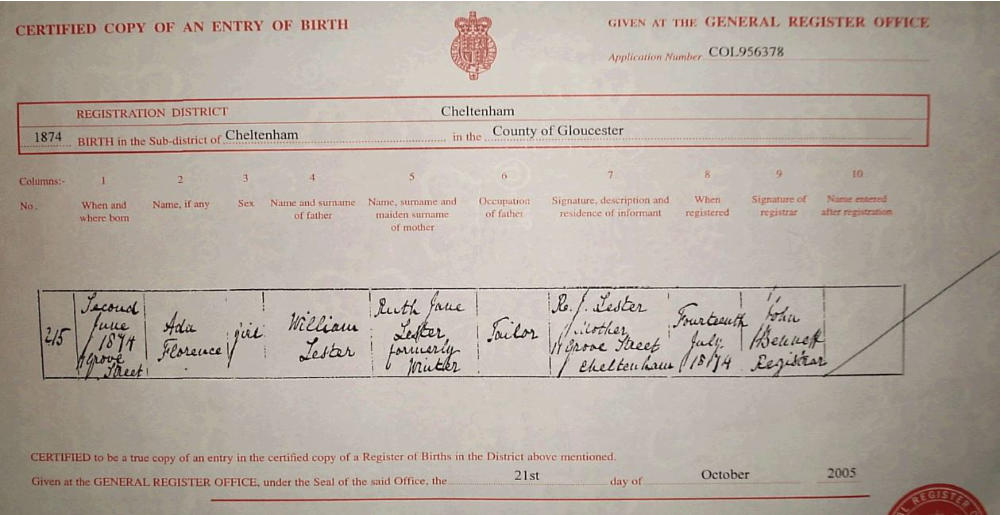 CERTIFIED COPY OF AN ENTRY OF BIRTH
GIVEN AT THE GENERAL REGISTER OFFICE
Application Number COL956378
REGISTRATION DISTRICT Cheltenham
1874 BIRTH in the Sub-district of Cheltenham in the County of Gloucester
Columns:- 1 2 3 4 5 6 7 8 9 10
No. When and where born
Name, if any
Sex
Name and surname of father
Name, surname and maiden surname of mother
Occupation of father
Signature, description and residence of informant
When registered
Signature of registrar
Name entered after registration
215
Second
June
1874
Grove
Street
Ada
Florence
girl
William
Lester
Ruth Jane
Lester
formerly
Winter
Tailor
R. J. Lester
Mother
Grove Street
Cheltenham
Fourteenth
July
1874
John
Bennett
Registrar
CERTIFIED to be a true copy of an entry in the certified copy of a Register of Births in the District above mentioned.
Given at the GENERAL REGISTER OFFICE, under the Seal of the said Office, the 21st day of October 2005
REGISTER